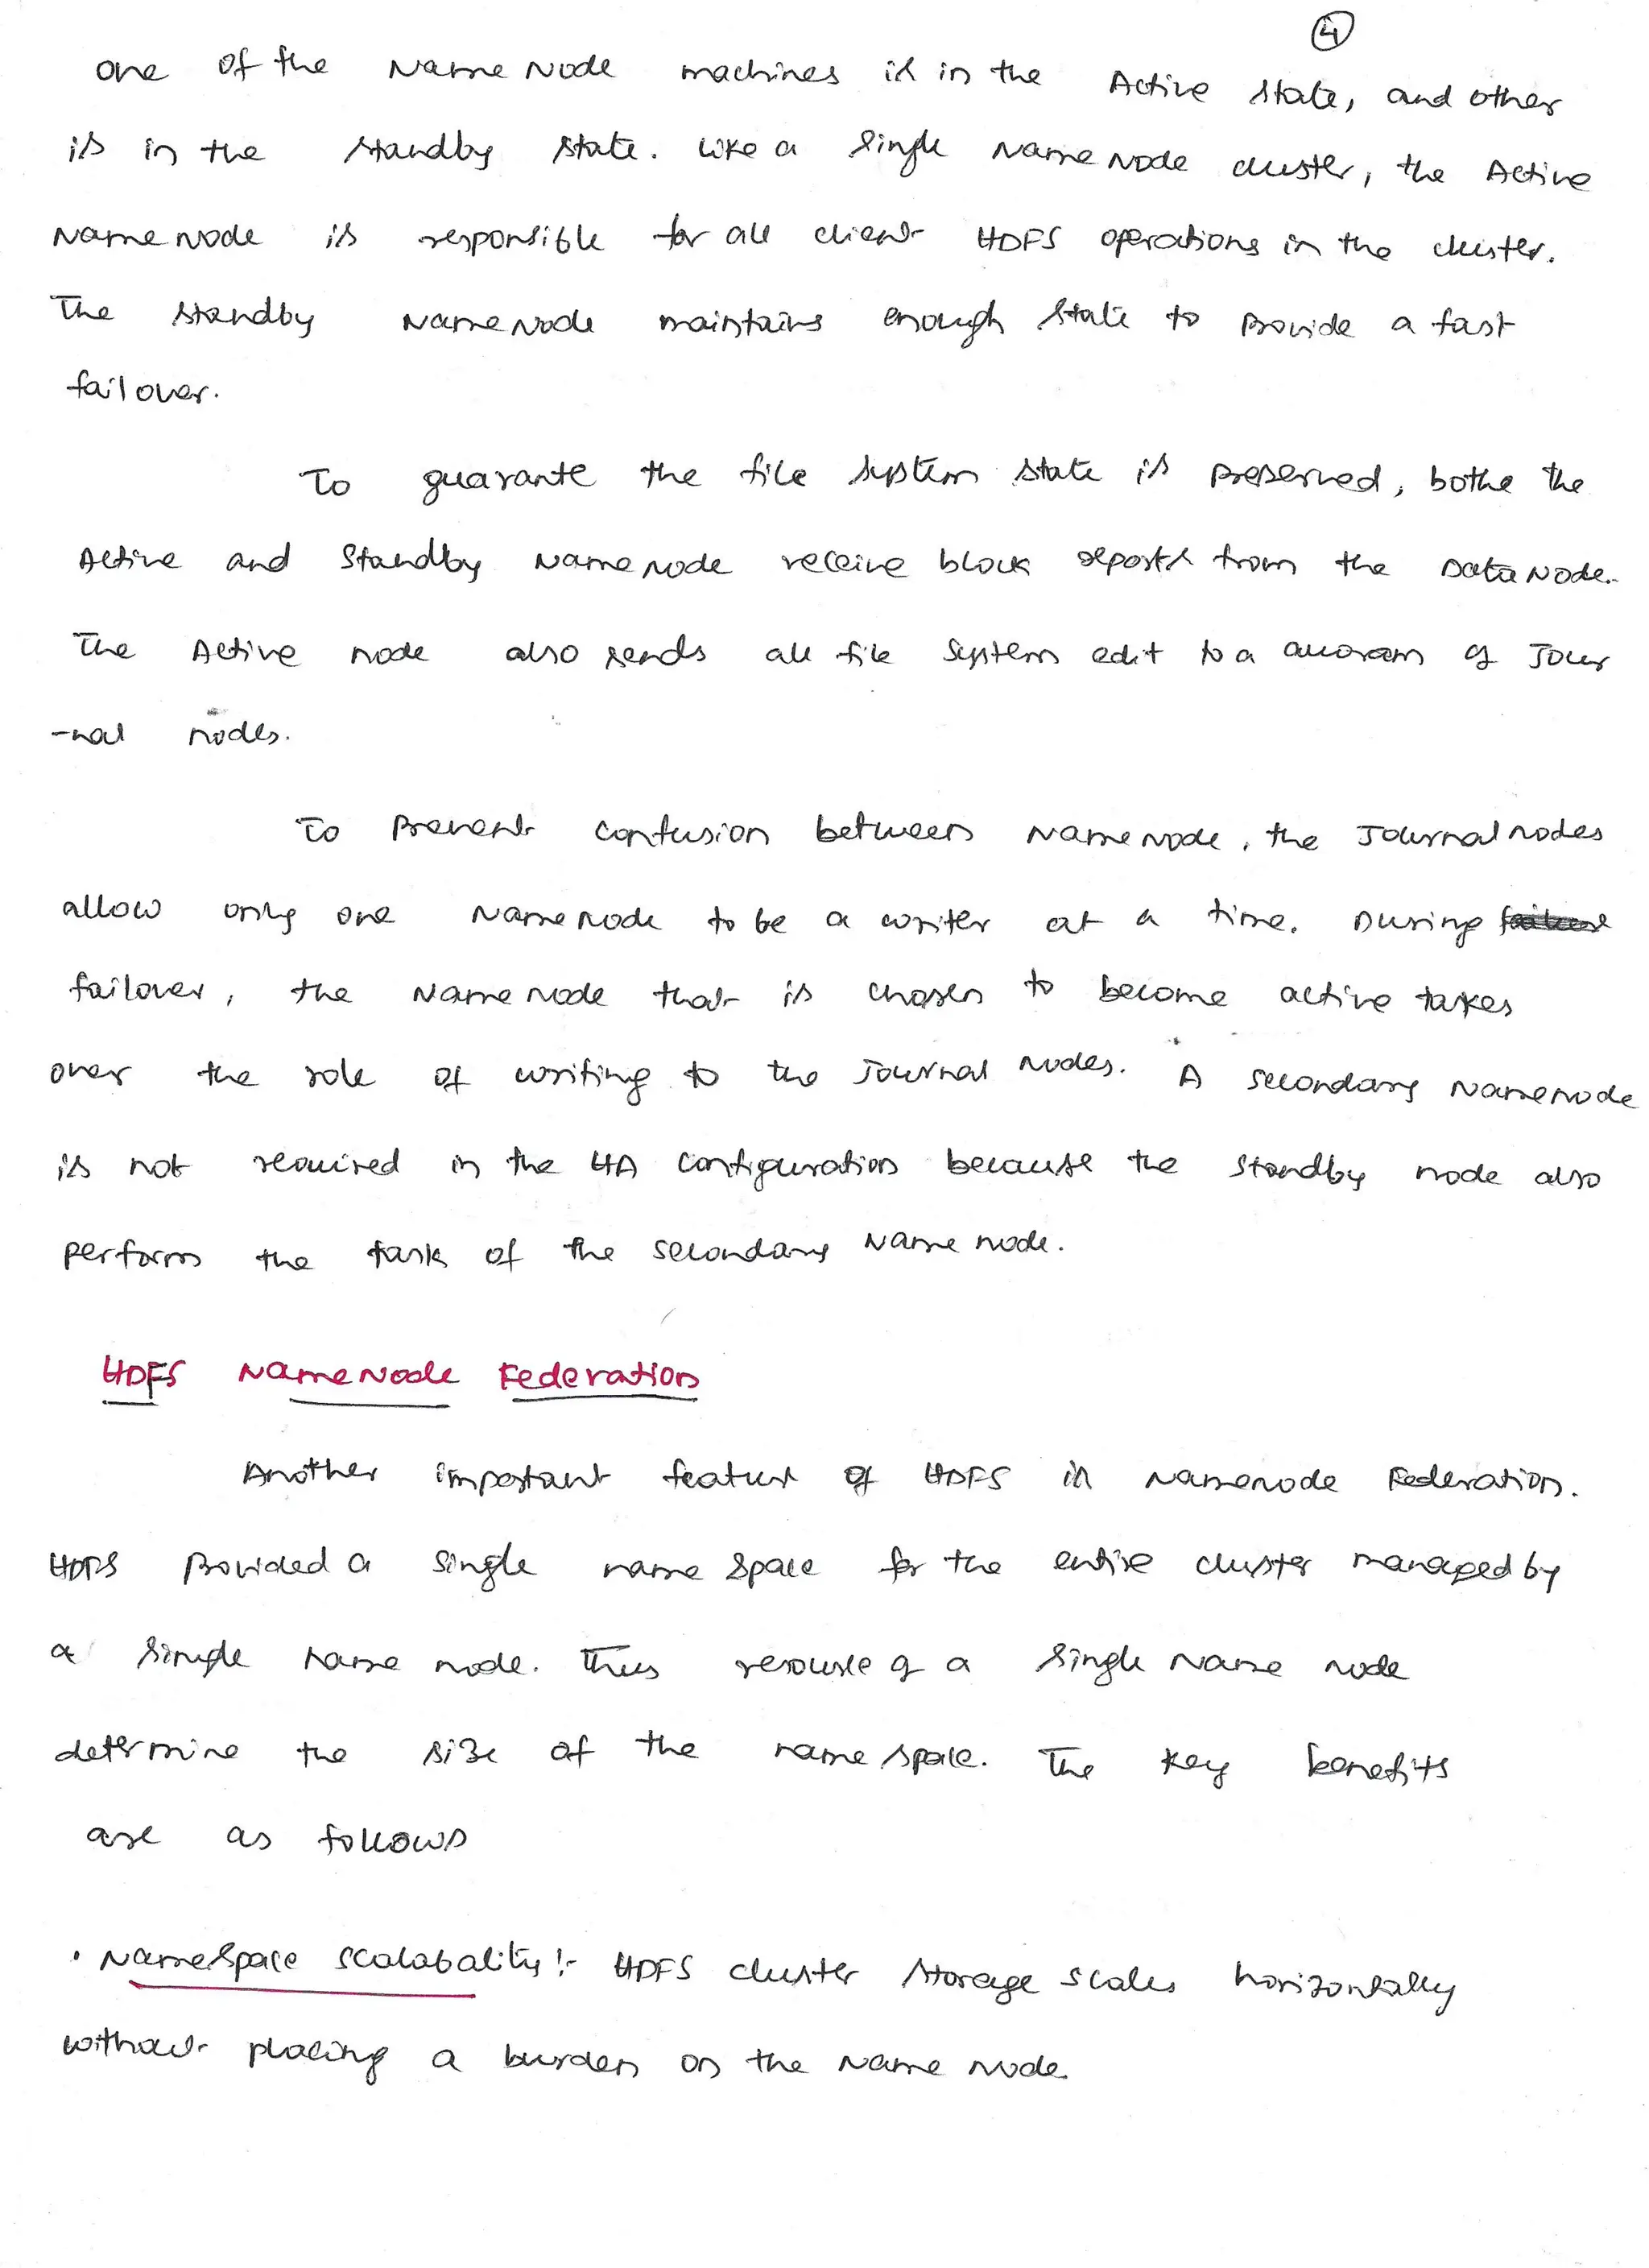 4
One of the NameNode machines is in the Active state, and other
is in the standby state. Like a single NameNode cluster, the Active
NameNode is responsible for all client HDFS operations in the cluster.
The standby NameNode maintains enough state to provide a fast
failover.
To guarante the file system state is preserved, bothe the
Active and Standby NameNode receive block reports from the DataNode.
The Active node also sends all file system edit to a quoram of Jour
-nal nodes.
To prevent confusion between NameNode, the Journal nodes
allow only one NameNode to be a writer at a time. During
failover, the NameNode that is chosen to become active takes
over the role of writing to the Journal Nodes. A secondary Namenode
is not required in the HA configuration because the standby node also
perform the task of the secondary Name node.
HDFS NameNode Federation
Another important feature of HDFS is Namenode Federation.
HDFS provided a single name space for the entire cluster managed by
a single name node. Thus resource of a single Name node
determine the size of the name space. The key benefits
are as follows
• NameSpace scalabality :- HDFS cluster storage scales horizontally
without placing a burden on the Name Node.